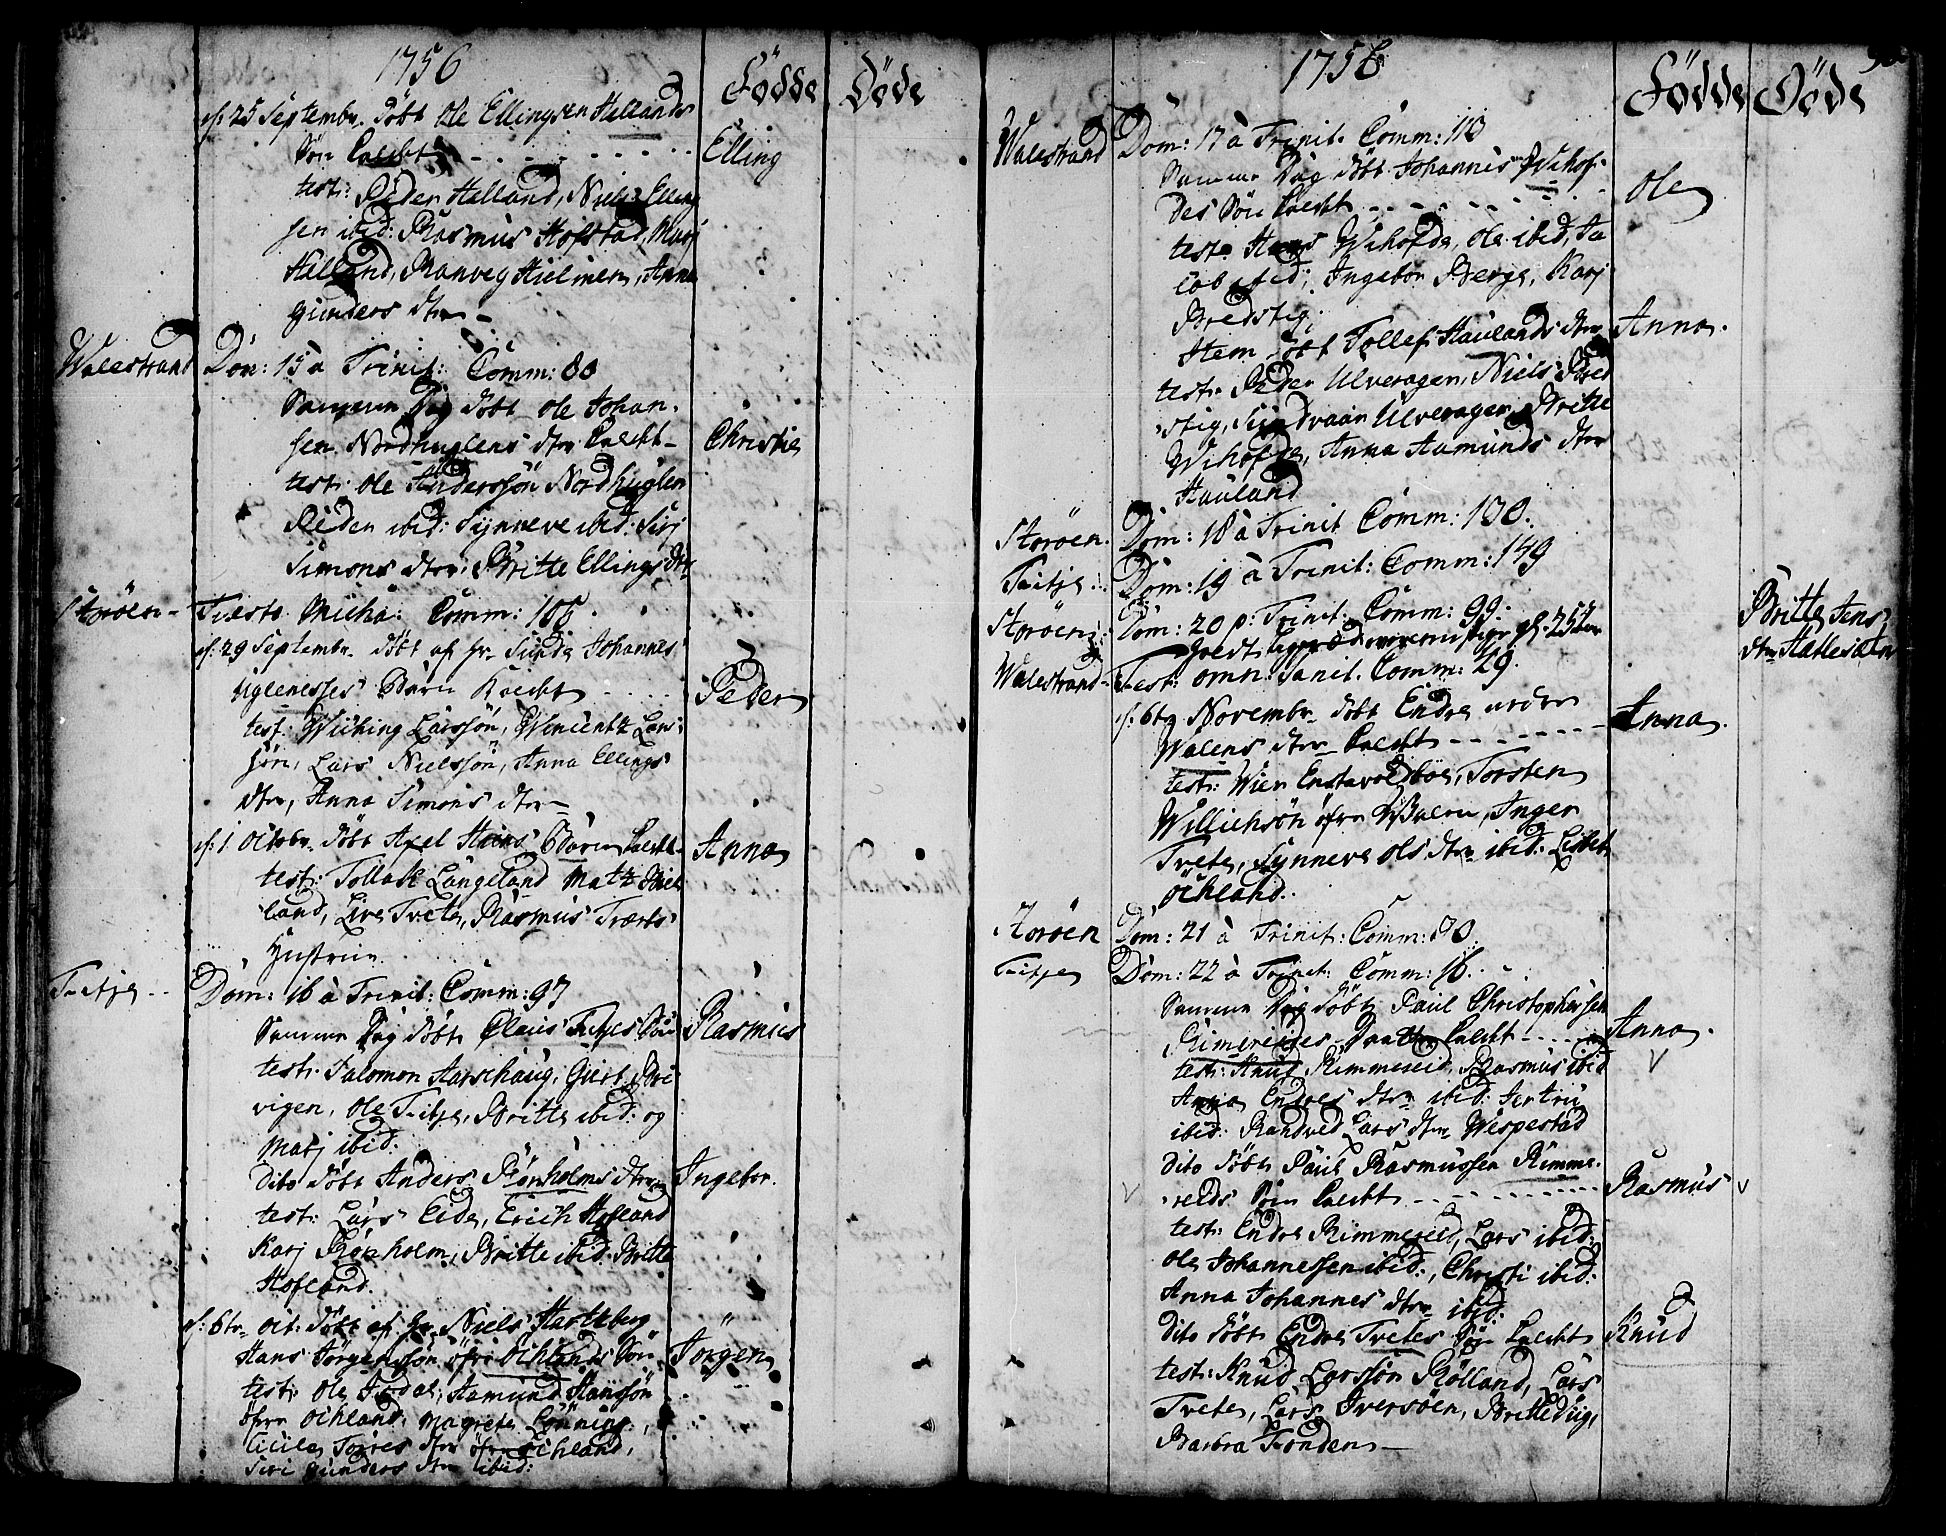 1756
Födde
Döde
d: 25 Septembr. döbt Ole Ellingsen Hellands
Sön kaldt
Elling
test: Peder Helland, Niels Elling
sen ibid: Rasmus Hofstad, Marj
Helland, Ranveg Hielmen, Anna
Gunders dtr
Walestrand
Dom: 15 à Trinit: Comm: 80
Samme Dag döbt Ole Johan
sen Nordhuglens dtr kaldt
Christi
test: Ole Anderssön Nordhuglen
Peder ibid: Synneve ibid: Siri
Simons dtr, Britte Ellings dtr
Storöen
Festo Micha: Comm: 106.
d: 29 Septembr döbt af hr Sunde Johannes
Barn kaldt
Peder
test: Wiching Larssön, Wincentz Lars
sön, Lars Nielssön, Anna Ellings
dtr, Anna Simons dtr
d: 1 Octobr döbt Axel Barn kaldt
Anna
test: Tollak Langeland Matz
land, Live Tvete, Rasmus
Hustrue.
Fitje
Dom: 16 à Trinit: Comm: 97
Samme Dag döbt Claus Fitjes Sön
Rasmus
test: Salomon Aarschaug, Giert
vigen, Ole Fitje, Britte ibid: og
Marj ibid:
Dito döbt Anders Rönholms dtr
Ingebor.
test: Lars Eide, Erich Hofland
Karj Rönholm, Britte ibid: Britte
Hofland.
d: 6te Oct: döbt af hr Niels Hartzberg
Hans Jörgenssön öfre Öchlands Sön
Jörgen
test: Ole Aamund Hanssön
öfre Öchland, Magrete Lönning,
Torres dtr öfre Öchland,
Siri Gunders dtr ibid:
1756
Födde
Döde
Walestrand
Dom: 17 à Trinit. Comm: 113
Samme Dag döbt Johannis Wihof
des Sön kaldt
Ole
test: Hans Wihofde, Ole ibid, Ja
cob ibid; Ingebor Berge, Karj
Bredstig;
Item döbt Tollef Haulands dtr
Anna.
test: Peder Ulveragen, Niels Bred
stig, Ulveragen Britte
Wihofde, Anna Aamunds dtr
Hauland
Storöen.
Dom: 18 à Trinit Comm: 130.
Fitje
Dom: 19 à Trinit: Comm: 149
Storöen
Dom: 20 p: Trinit. Comm: 99.
Britte Jens
dtr
Walestrand
Fest: omn: Sanct. Comm: 29.
d: 6te Novembr döbt Endre
Walens dtr kaldt
Anna.
test: Torsten
öfre Inger
Tvete, Synneve Ols dtr ibid: Lisbet
Öchland.
Storöen
Dom: 21 à Trinit: Comm: 70.
Fitje
Dom: 22 à Trinit: Comm: 16.
Samme Dag döbt Paul Christophersen
Rimereides kaldt
Anna.
test: Knud Rimmereid, Rasmus ibid
Anna Endres dtr ibid: Jertru
ibid: Randved Lars dtr Wespestad
Dito döbt Paul Rasmussen Rimme
reids Sön kaldt
Rasmus
test: Endre Rimmereid, Lars ibid:
Ole Johannessen ibid:, Christi ibid:
Anna Johannes dtr ibid:
Dito döbt Endre Tvetes Sön kaldt
Knud
test: Knud Larssön Rölland, Lars
Tvete, Lars Iversöen, Britte
Barbra Fonden